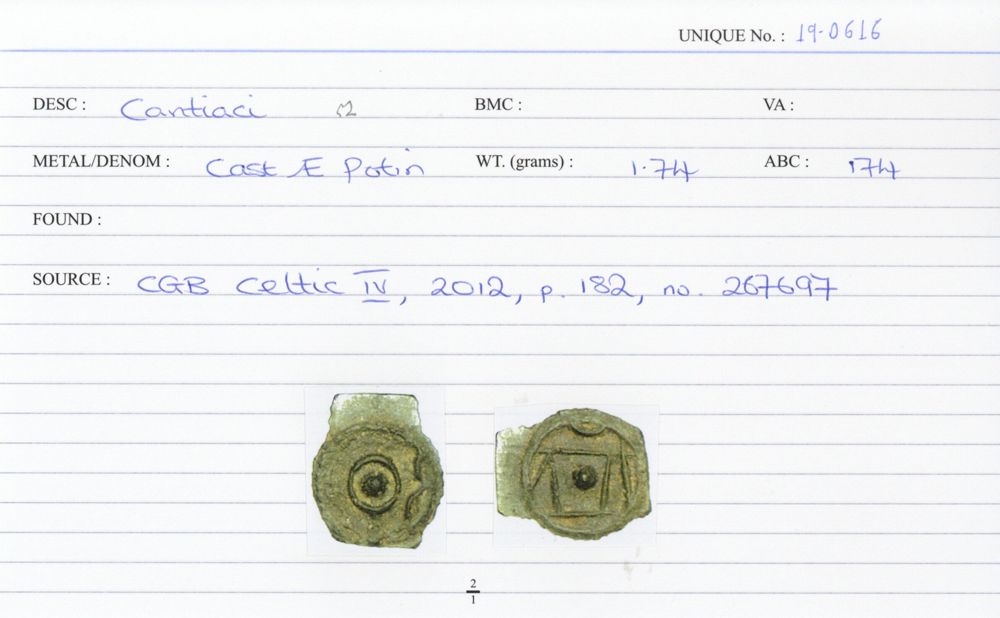 UNIQUE No. : 19-0616
DESC : Cantiaci BMC : VA :
METAL/DENOM : Cast Æ Potin WT. (grams) : 1.74 ABC : 174
FOUND :
SOURCE : CGB Celtic IV, 2012, p. 182, no. 267697
2
1